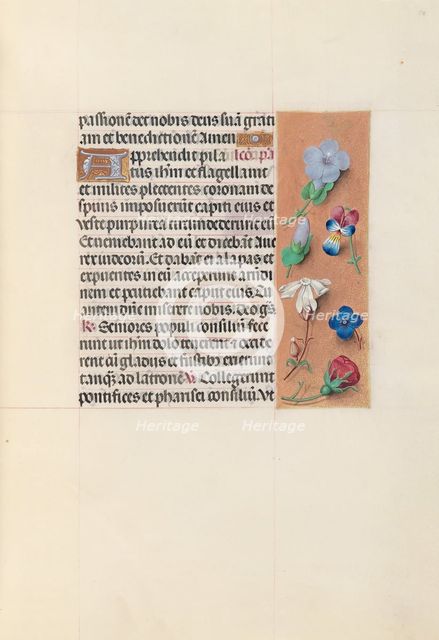 passionē det nobis deus suā grati
am et benedictionē Amen
Apprehendit pila lc̄o pa
tus ihm̄ et flagellauit
et milites plectentes coronam de
spinis imposuerunt capiti eius et
veste purpurea circundederunt eū
Et ueniebant ad eū et dicebāt Aue
rex iudeorū. Et dabāt ei alapas et
expuentes in eū acceperunt arūdi
nem et percutiebant caput eius. Tu
autem dnē miserere nobis. Deo grs̄.
R. Seniores populi consiliū fece
runt ut ihm̄ dolo tenerent et occide
rent cū gladiis et fustibus exierunt
tanq̄ ad latronē V. Collegerunt
pontifices et pharisei consiliū. Vt
Heritage
Heritage
Heritage
Heritage
Heritage
Heritage